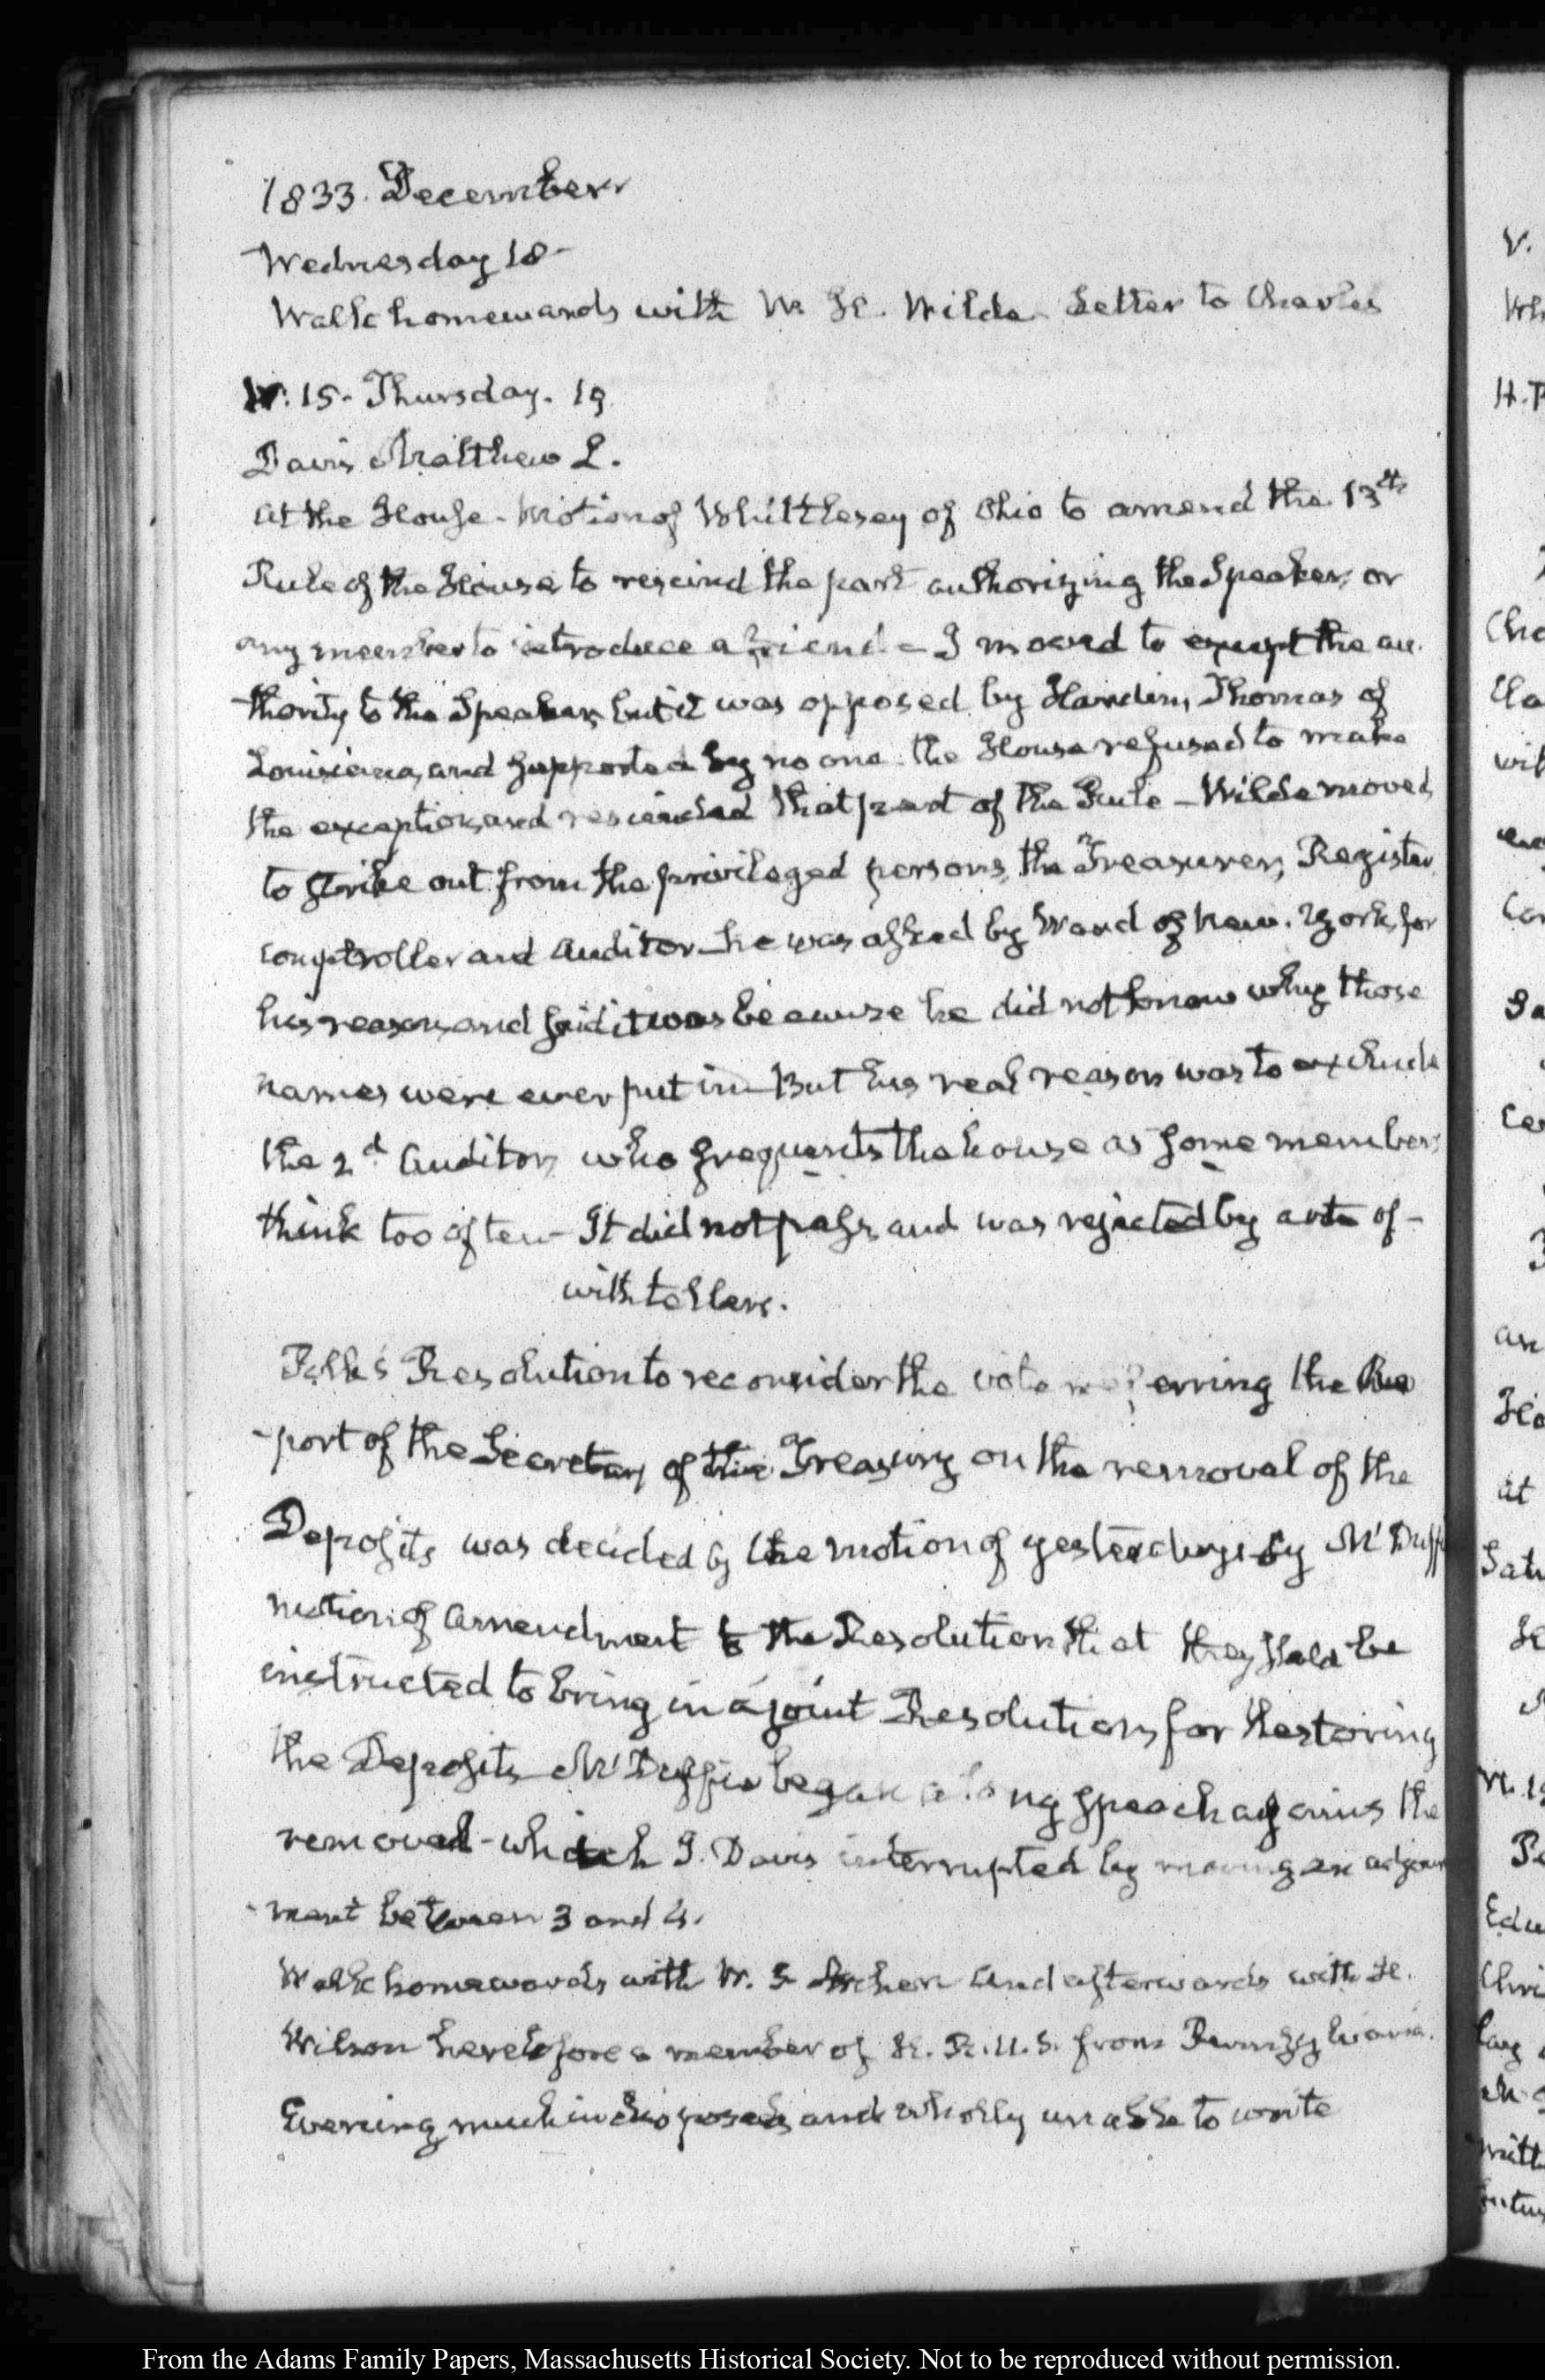 1833. December
Wednesday 18-
Walk homewards with R. H. Wilde. Letter to Charles
IV. 15. Thursday. 19
Davis Matthew L.
At the House. Motion of Whittlesey of Ohio to amend the 13th
Rule of the House to rescind the part authorizing the Speaker, or
any member to introduce a friend - I moved to except the au
thority to the Speaker, but it was opposed by Hardin, Thomas of
Louisiana, and supported by no one. The House refused to make
the exception, and rescinded that part of the Rule - Wilde moved
to strike out from the privileged persons, the Treasurer, Register,
comptroller and Auditor - he was asked by Ward of New-York, for
his reason, and said it was because he did not know why those
names were ever put in - But his real reason was to exclude
the 2d Auditor, who frequents the house as some members
think too often - It did not pass, and was rejected by a vote of -
with tellers.
Polk's Resolution to reconsider the vote referring the Re
-port of the Secretary of the Treasury on the removal of the
Deposits was decided by the motion of yesterday by McDuff
motion of amendment to the Resolution that they should be
instructed to bring in a joint Resolution, for restoring
the Deposits McDuffie began a long speech against the
removal - which J. Davis interrupted by moving an adjourn
-ment between 3 and 4.
Walk homewards with W. S. Archer and afterwards with H.
Wilson heretofore a member of H. R. U. S. from Pennsylvania.
Evening much indisposed, and wholly unable to write
From the Adams Family Papers, Massachusetts Historical Society. Not to be reproduced without permission.